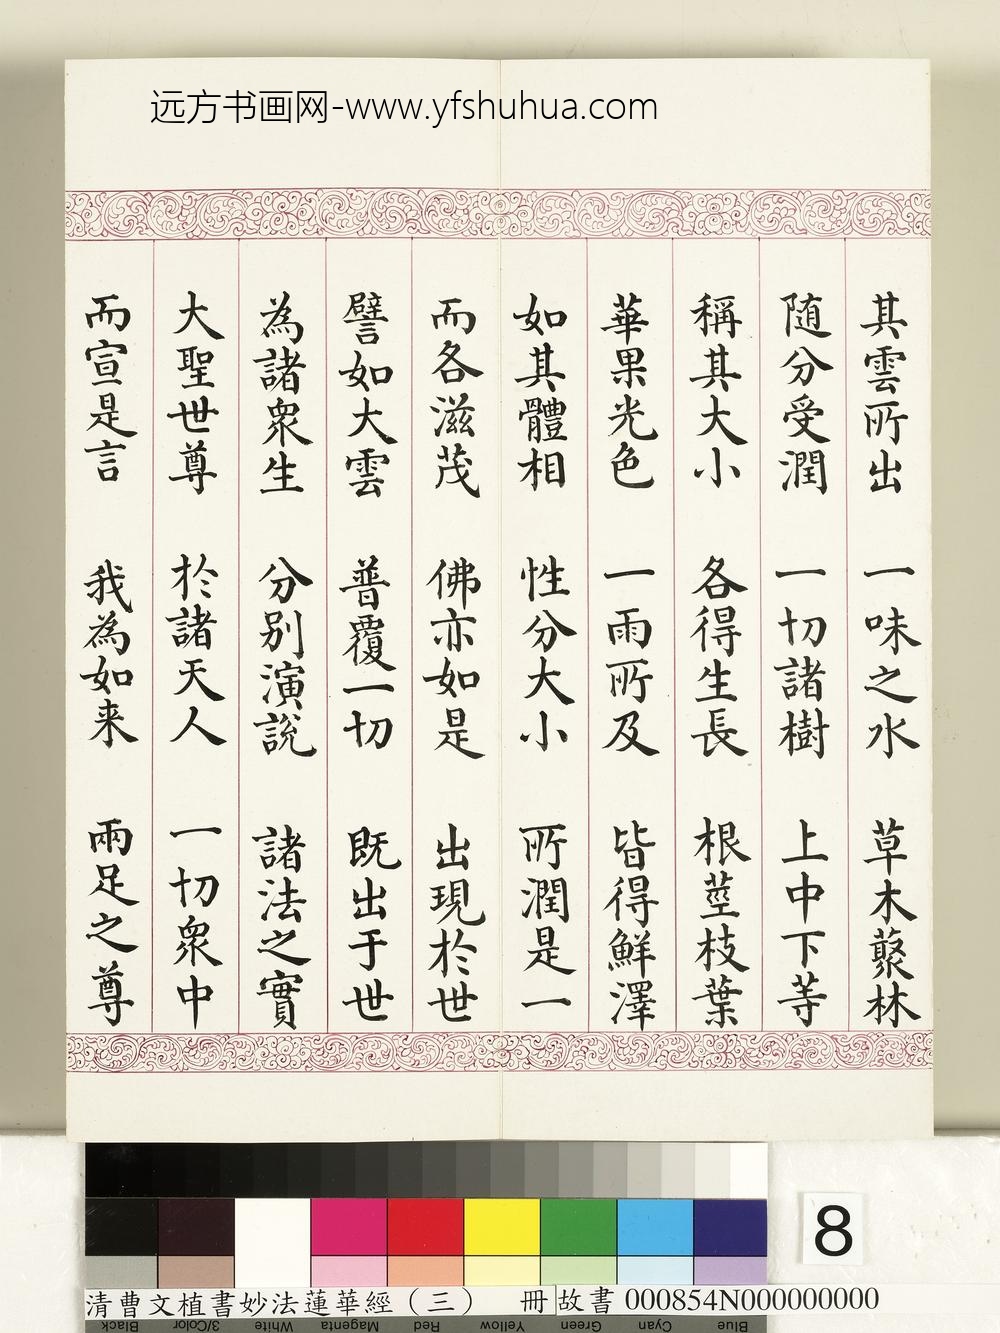 远方书画网-www.yfshuhua.com
其雲所出 一味之水 草木藂林
随分受潤 一切諸樹 上中下等
稱其大小 各得生長 根莖枝葉
華果光色 一雨所及 皆得鮮澤
如其體相 性分大小 所潤是一
而各滋茂 佛亦如是 出現於世
譬如大雲 普覆一切 既出于世
為諸眾生 分别演說 諸法之實
大聖世尊 於諸天人 一切眾中
而宣是言 我為如来 兩足之尊
8
清曹文植書妙法蓮華經（三） 冊 故書 000854N000000000
Black 3/Color White Magenta Red Yellow Green Cyan Blue